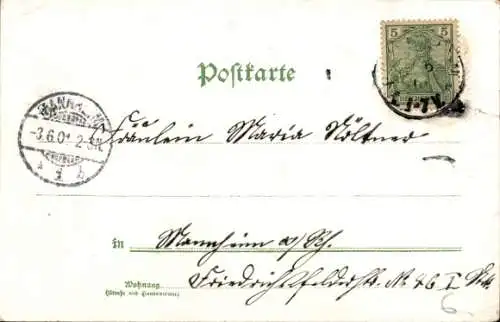 5
Postkarte
MANNHEIM
-3.6.01. 2-3N.
Fräulein Maria Nöltner
in Mannheim a/Rh.
Wohnung
(Straße und Hausnummer)
Friedrichsfelderstr. No 46 I St.
6